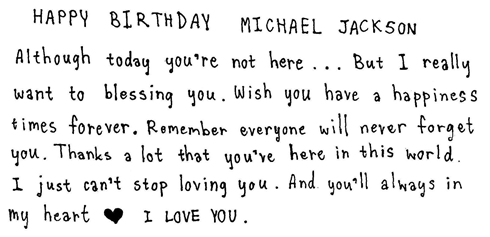 HAPPY BIRTHDAY MICHAEL JACKSON
Although today you're not here ... But I really
want to blessing you. Wish you have a happiness
times forever. Remember everyone will never forget
you. Thanks a lot that you've here in this world.
I just can't stop loving you. And you'll always in
my heart ♥ I LOVE YOU.